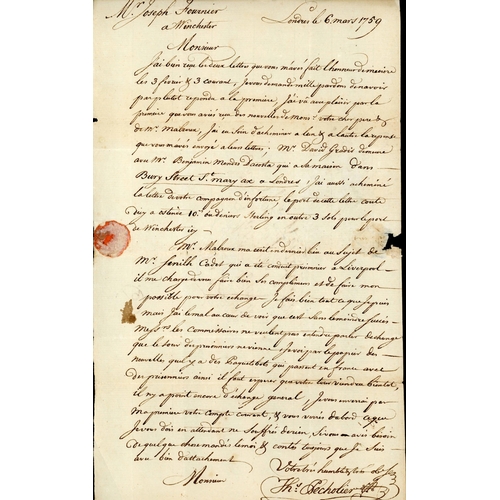 Mr. Joseph Fournier Londres le 6 mars 1759
a Winchester
Monsieur
J'ai bien reçu les deux lettres que vous m'avés fait l'honneur de m'ecrire
les 3 fevrier & 3 courant, je vous demande mille pardon de n'avoir
pas plutot repondu a la premiere, J'ai vû avec plaisir par la
premiere que vous aviés reçu des nouvelles de Monsr. votre cher pere &
de Mr. Maleux, J'ai eu Soin d'acheminer a l'un & a l'autre la reponse
que vous m'avés envoyé a leurs lettres. Mr. David Gradis demeure
avec Mr. Benjamin Mendes Dacosta qui a Sa maison dans
Bury Street St. mary ax a Londres J'ai aussi acheminé
la lettre de votre compagnon d'infortune le port de cette lettre coute
d'icy a 10 ou deniers Sterling en outre 3 Sols pour le port
de Winchester icy
Mr. Maleux m'a ecrit en dernier lieu au Sujet de
Mr. Cadet qui a eté conduit prisonnier a Liverpool
il me charge de vous faire bien Ses complimens et de faire mon
possible pour votre echange. Je fais bien tout ce que je puis
mais J'ai le mal au coeur de voir que c'est Sans le moindre succès
Messrs. les Commissaires ne veulent pas entendre parler d'echange
que le tour du prisonnier ne vienne. Je vois par les papiers des
nouvelles qu'il y a des Paquetbots qui passent en france avec
des prisonniers ainsi il faut esperer que votre tour viendra bientot,
il n'y a point encore d'echange general, Je vous enverrai par
Ma premiere votre Compte courant, & vous verrés d'abord ce que
Je vous dois en attendant ne Souffrés de rien, Si vous avés besoin
de quelque chose mandés le moi & contés toujours que je Suis
avec bien d'attachement
Monsieur Votre tres humble & tres obt. Ser
Ths. Pecholier